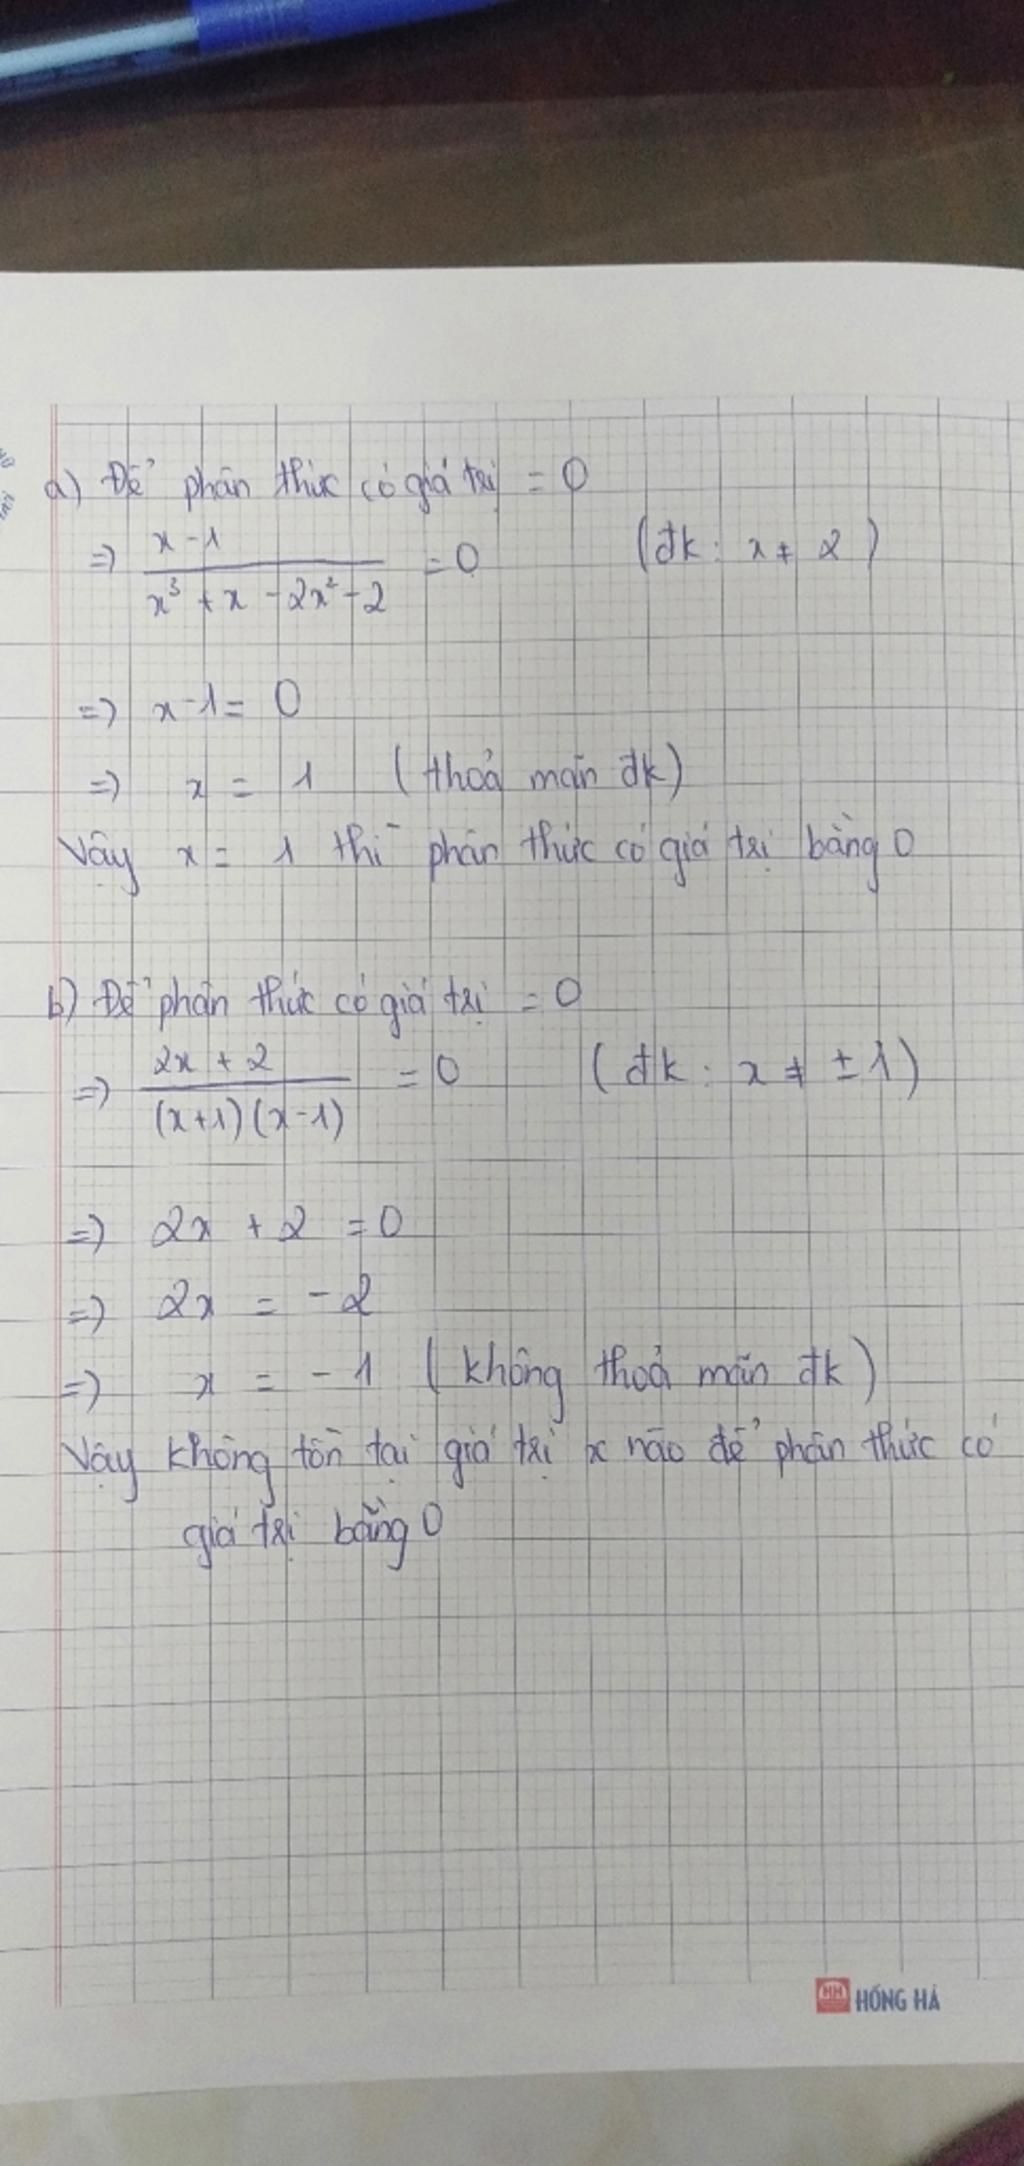 a) Để phân thức có giá trị = 0
=> x - 1 / x³ + x - 2x² - 2 = 0 (đk: x ≠ 2)
=> x - 1 = 0
=> x = 1 (thoả mãn đk)
Vậy x = 1 thì phân thức có giá trị bằng 0
b) Để phân thức có giá trị = 0
=> 2x + 2 / (x+1)(x-1) = 0 (đk: x ≠ ±1)
=> 2x + 2 = 0
=> 2x = -2
=> x = -1 (không thoả mãn đk)
Vậy không tồn tại giá trị x nào để phân thức có
giá trị bằng 0
HH HỒNG HÀ